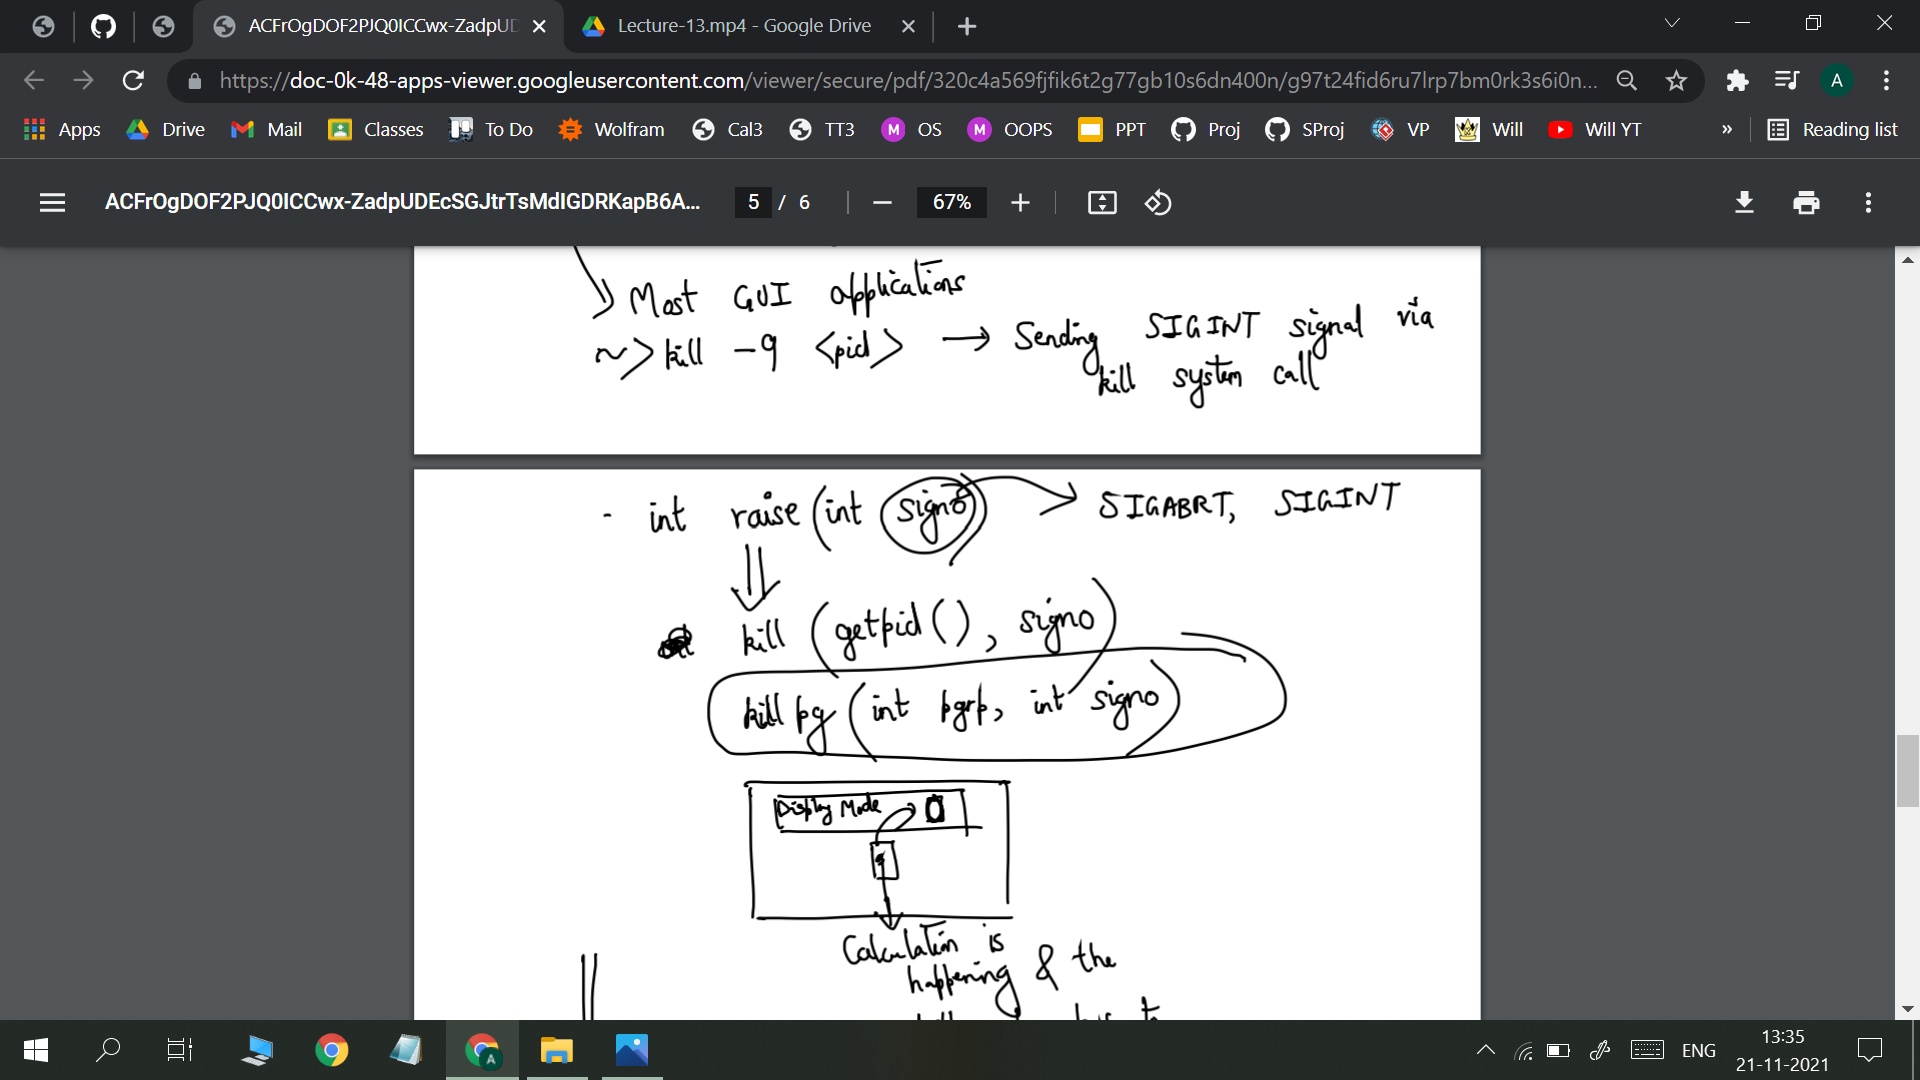 ACFrOgDOF2PJQ0ICCwx-ZadpUD
Lecture-13.mp4 - Google Drive
https://doc-0k-48-apps-viewer.googleusercontent.com/viewer/secure/pdf/320c4a569fjfik6t2g77gb10s6dn400n/g97t24fid6ru7lrp7bm0rk3s6i0n...
A
Apps Drive Mail Classes To Do Wolfram Cal3 TT3 M OS M OOPS PPT Proj SProj VP Will Will YT » Reading list
ACFrOgDOF2PJQ0ICCwx-ZadpUDEcSGJtrTsMdIGDRKapB6A... 5 / 6 67%
Most GUI applications
~> kill -9 <pid> → Sending SIGINT signal via
kill system call
- int raise (int signo) → SIGABRT, SIGINT
kill (getpid(), signo)
killpg (int pgrp, int signo)
Display Mode 0
Calculation is
happening & the
A
ENG
13:35
21-11-2021